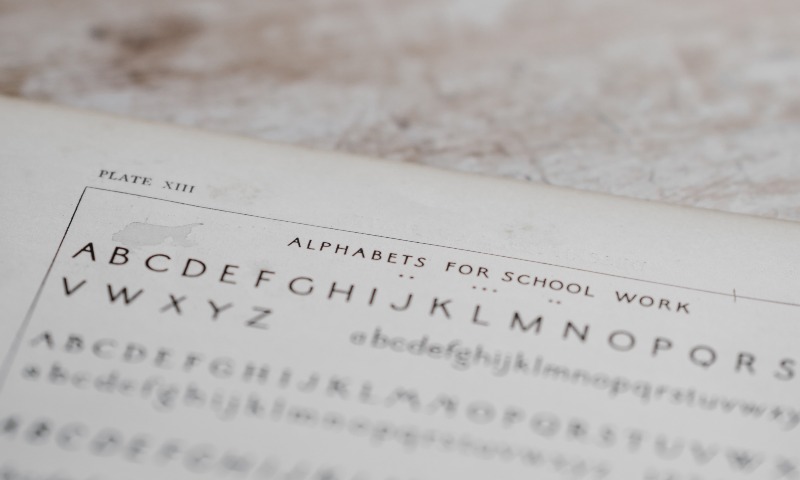 PLATE XIII
ALPHABETS FOR SCHOOL WORK
A B C D E F G H I J K L M N O P Q R S
V W X Y Z
abcdefghijklmnopqrstuvwxy
A B C D E F G H I J K L M N O P Q R S T U V W X
abcdefghijklmnopqrstuvwxyz
A B C D E F G H I J K L M N O P Q R S T